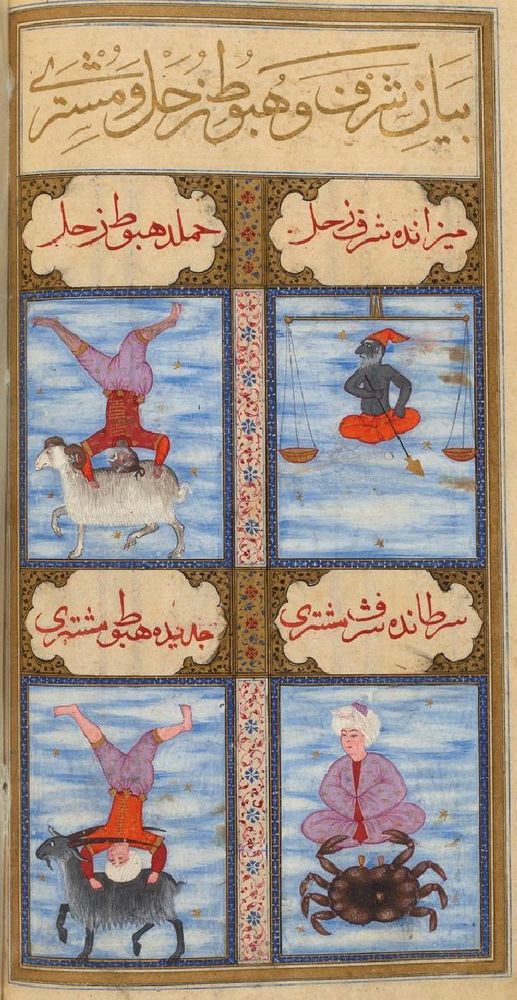 بيانِ شرف وَهُبوط زُحَل وَمُشتَرى
ميزانده شرف زحل
حملده هبوط زحل
سرطانده شرف مشترى
جديده هبوط مشترى